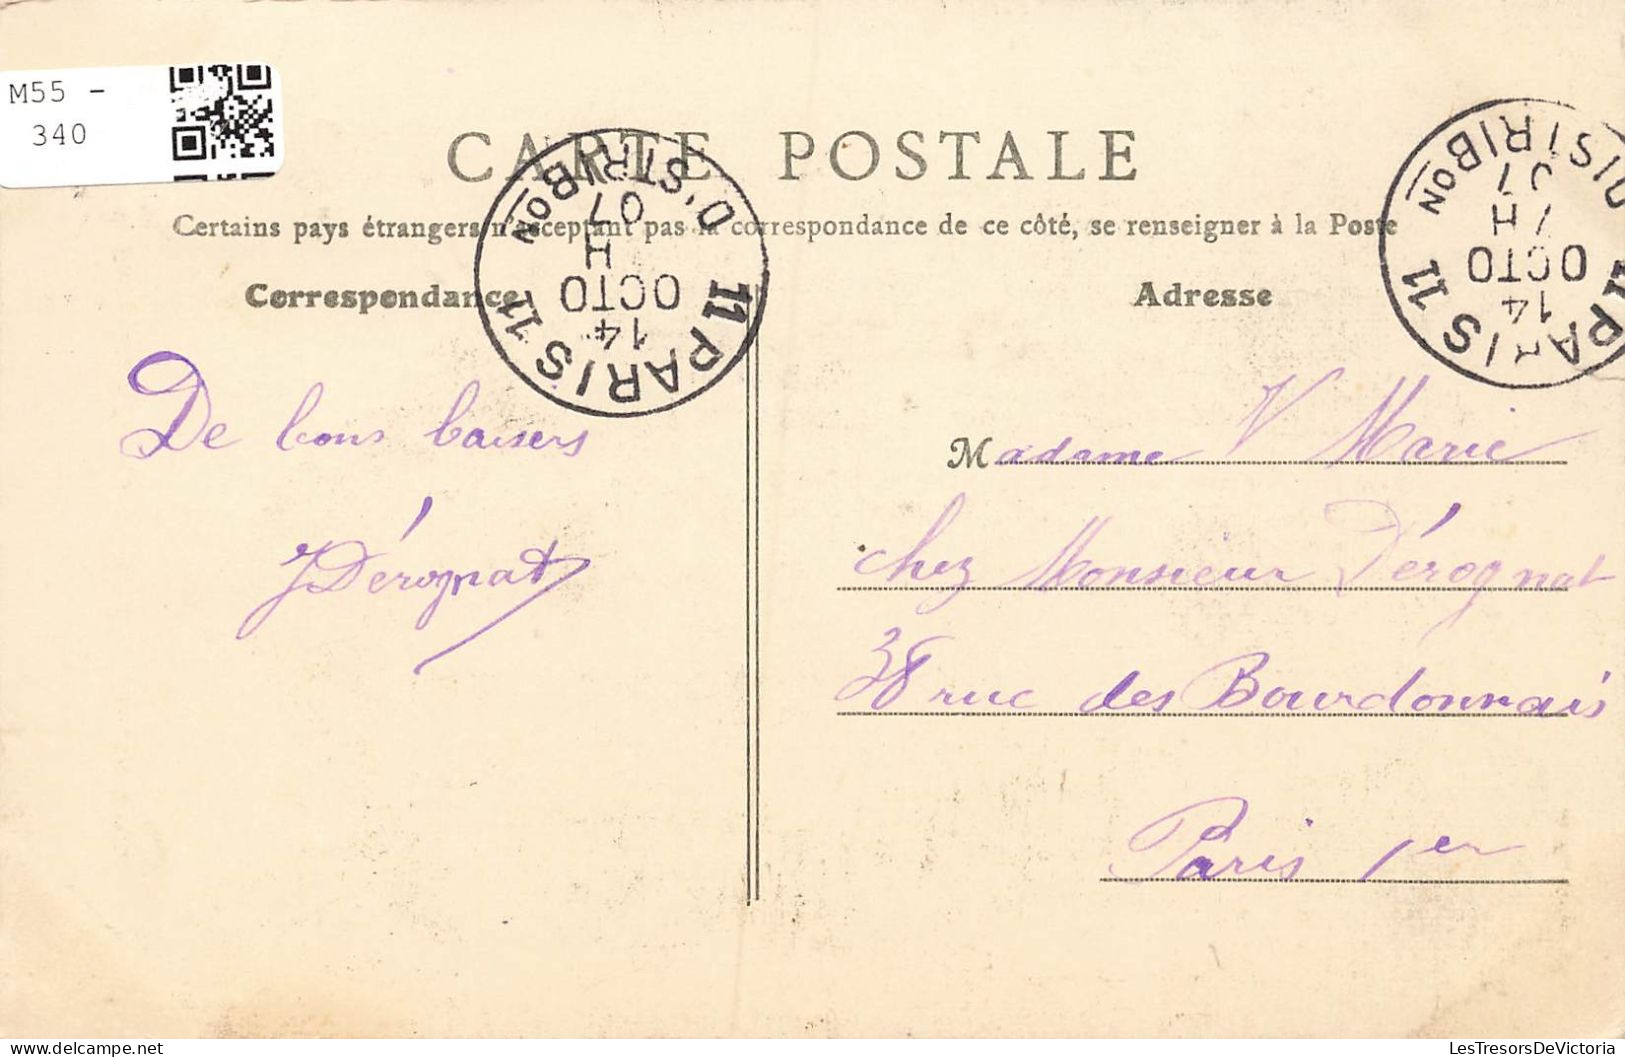 M55 -
340
CARTE POSTALE
Certains pays étrangers n'acceptent pas la correspondance de ce côté, se renseigner à la Poste
Correspondance
Adresse
PARIS 11
DISTRIBON
14
OCTO
H
07
11
PARIS 11
DISTRIBON
14
OCTO
7H
07
11
De bons baisers
JDérognat
Madame V Marie
chez Monsieur Dérognat
38 rue des Bourdonnais
Paris 1er
LesTresorsDeVictoria
www.delcampe.net